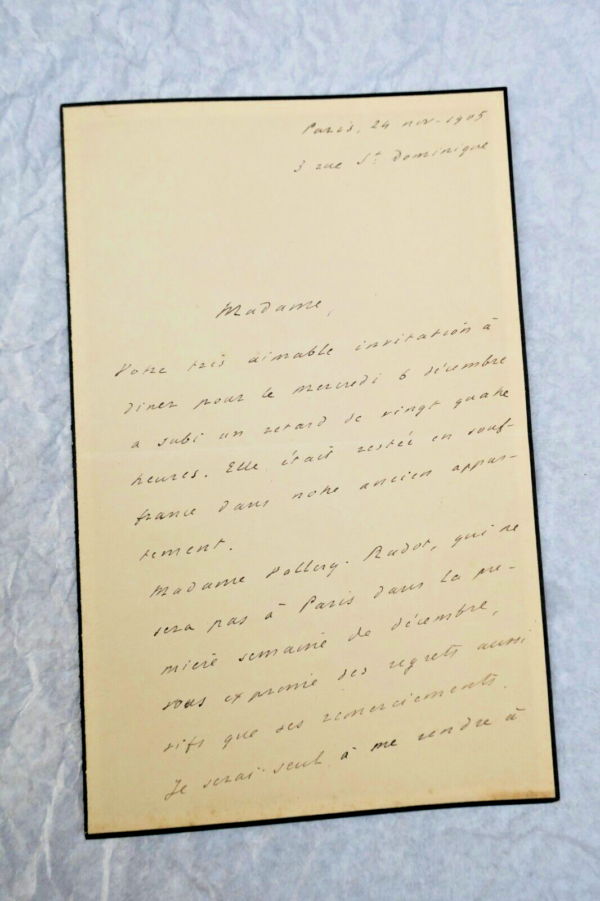 Paris, 24 nov. 1905
3 rue St Dominique
Madame,
Votre très aimable invitation à
dîner pour le mercredi 6 décembre
a subi un retard de vingt quatre
heures. Elle était restée en souf-
france dans notre ancien appar-
tement.
Madame Vallery-Radot, qui ne
sera pas à Paris dans la pre-
mière semaine de décembre,
vous exprime ses regrets aussi
vifs que ses remerciements.
Je serai seul à me rendre à